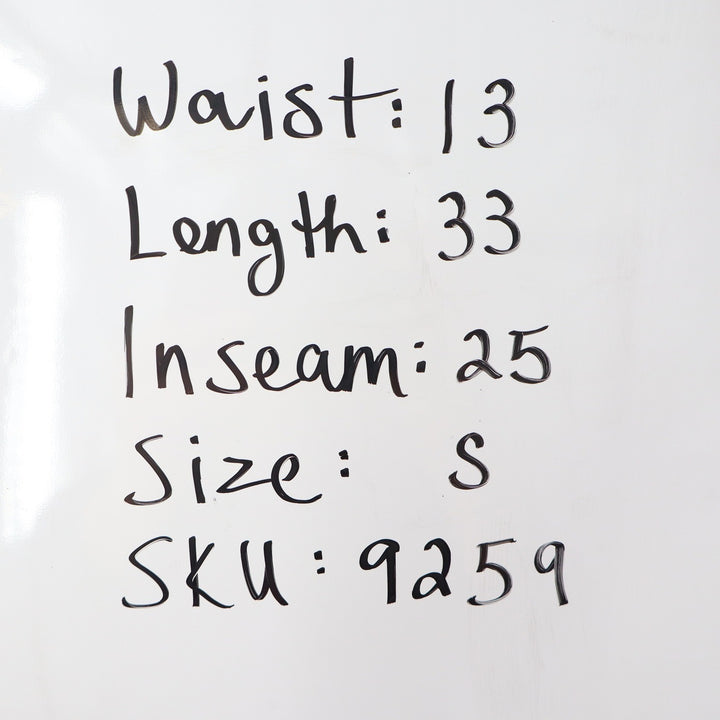 Waist: 13
Length: 33
Inseam: 25
Size: S
SKU: 9259